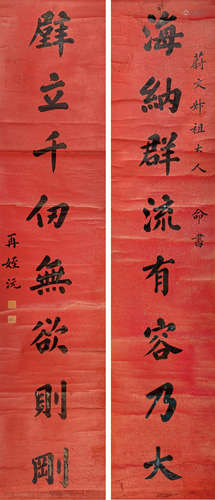 蔚文祖大人 命書
海納群流有容乃大
壁立千仞無欲則剛
再姪沅